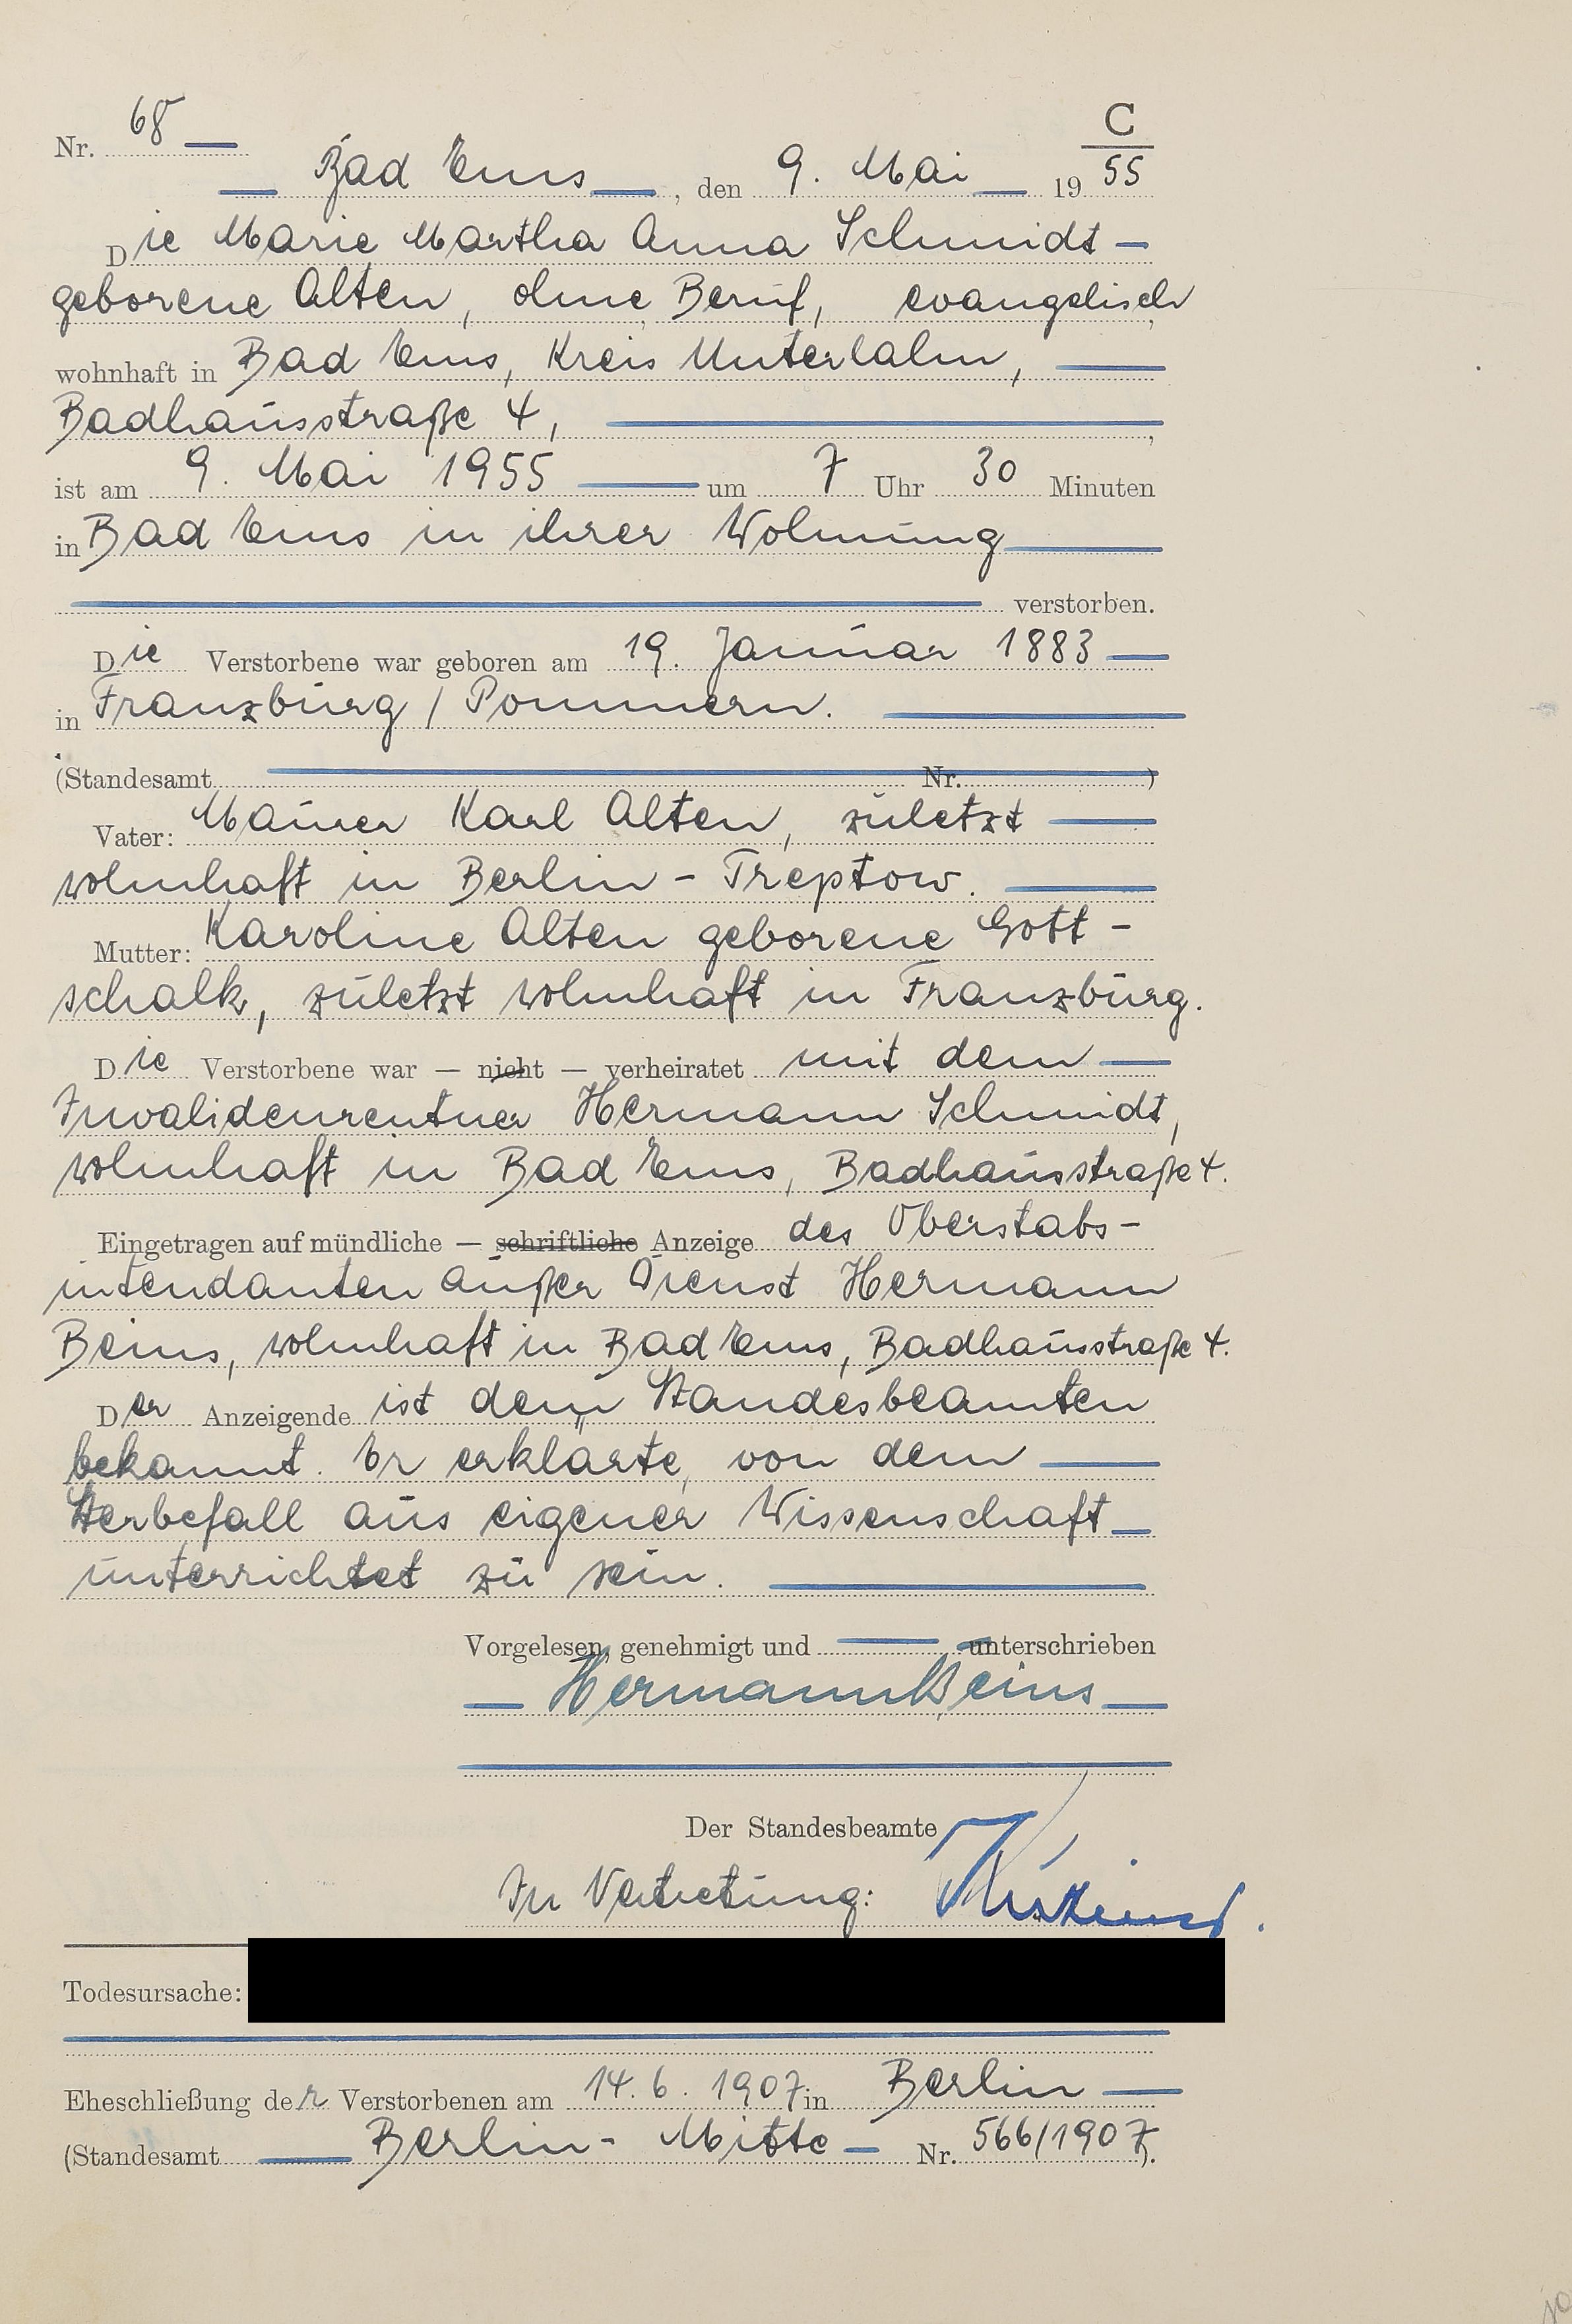 C
Nr. 68
Bad Ems, den 9. Mai 1955
Die Marie Martha Anna Schmidt
geborene Alten, ohne Beruf, evangelisch,
wohnhaft in Bad Ems, Kreis Unterlahn,
Badhausstraße 4,
ist am 9. Mai 1955 um 7 Uhr 30 Minuten
in Bad Ems in ihrer Wohnung
verstorben.
Die Verstorbene war geboren am 19. Januar 1883
in Franzburg / Pommern.
(Standesamt Nr. )
Vater: Maurer Karl Alten, zuletzt
wohnhaft in Berlin - Treptow.
Mutter: Karoline Alten geborene Gott-
schalk, zuletzt wohnhaft in Franzburg.
Die Verstorbene war — nicht — verheiratet mit dem
Invalidenrentner Hermann Schmidt,
wohnhaft in Bad Ems, Badhausstraße 4.
Eingetragen auf mündliche — schriftliche Anzeige des Oberstabs-
intendanten außer Dienst Hermann
Beins, wohnhaft in Bad Ems, Badhausstraße 4.
Der Anzeigende ist dem Standesbeamten
bekannt. Er erklärte, von dem
Sterbefall aus eigener Wissenschaft
unterrichtet zu sein.
Vorgelesen, genehmigt und unterschrieben
Hermann Beins
Der Standesbeamte
In Vertretung:
Todesursache:
Eheschließung der Verstorbenen am 14.6.1907 in Berlin
(Standesamt Berlin - Mitte Nr. 566/1907).